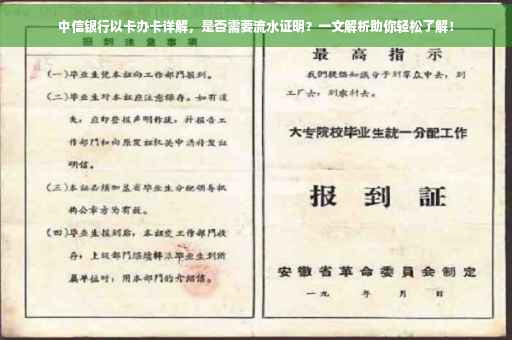 中信银行以卡办卡详解，是否需要流水证明？一文解析助你轻松了解！
报到注意事项
(一)毕业生凭本证向工作部門报到。
(二)毕业生对本证应注意保存。如有遗
失，应即登报声明作废，并报告工
作部門和向原发证机关申請补发证
明信。
(三)本证必须加盖省毕业生分配领导机
构公章方为有效。
(四)毕业生报到后，本证交工作部門收
存；上级部門
毕业生到所
属单位时，用本部門的介紹信。
最高指示
我們提倡知識分子到羣众中去，到
工厂去，到农村去。
大专院校毕业生統一分配工作
报到証
安徽省革命委員会制定
一九 年 月 日